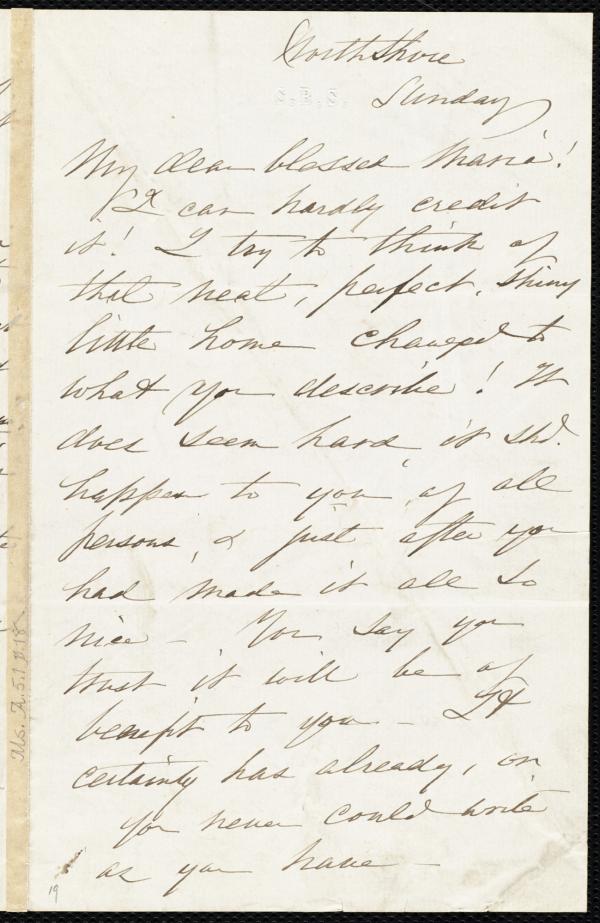 North Shore
S.B.S.
Sunday
My dear blessed Maria!
I can hardly credit
it! I try to think of
that neat, perfect, shiny
little home changed to
what you describe! It
does seem hard it shd.
happen to you, of all
persons, & just after you
had made it all so
nice - You say you
trust it will be of
benefit to you - It
certainly has already, or
you never could write
as you have -
19
Ms. A.5.1 p.18